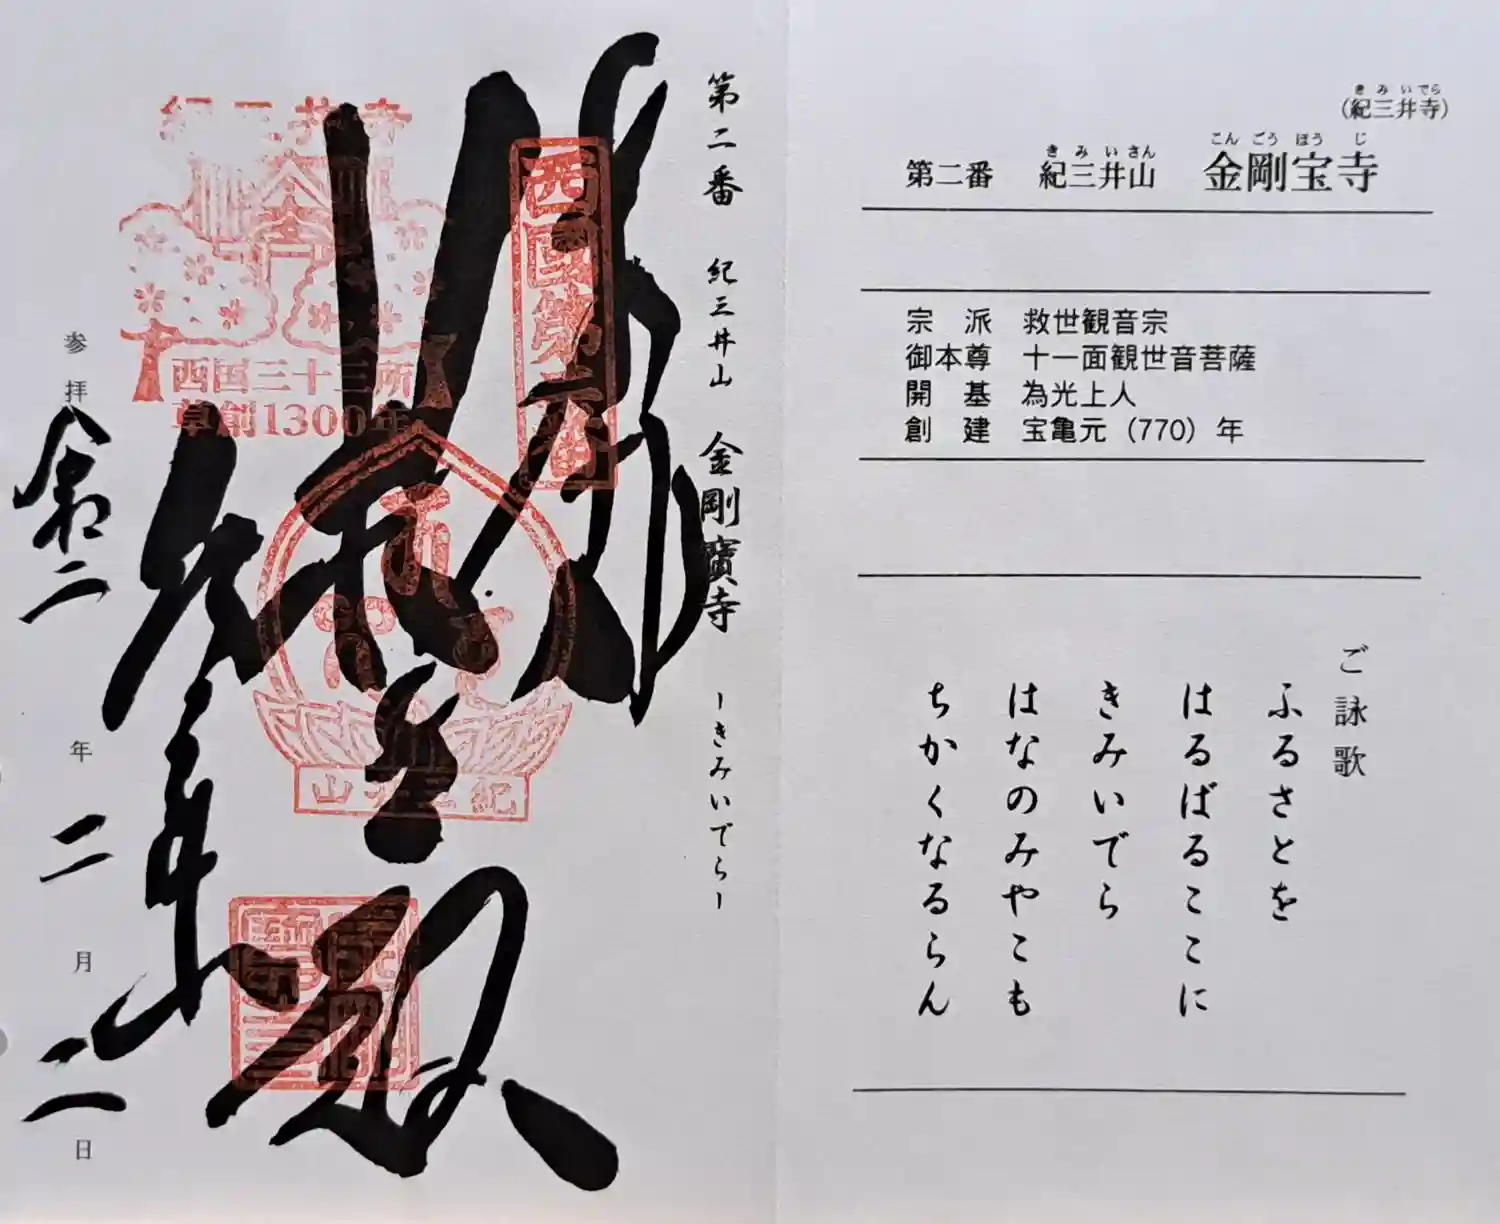 (紀三井寺)
きみいでら
第二番 紀三井山 金剛宝寺
きみいさん こんごうほうじ
宗 派 救世観音宗
御本尊 十一面観世音菩薩
開 基 為光上人
創 建 宝亀元（770）年
ご詠歌
ふるさとを
はるばるここに
きみいでら
はなのみやこも
ちかくなるらん
第二番 紀三井山 金剛寶寺 ーきみいでらー
西國第二番
紀三井寺
西国三十三所
草創1300年
紀三井山
参拝 令和二年二月 日